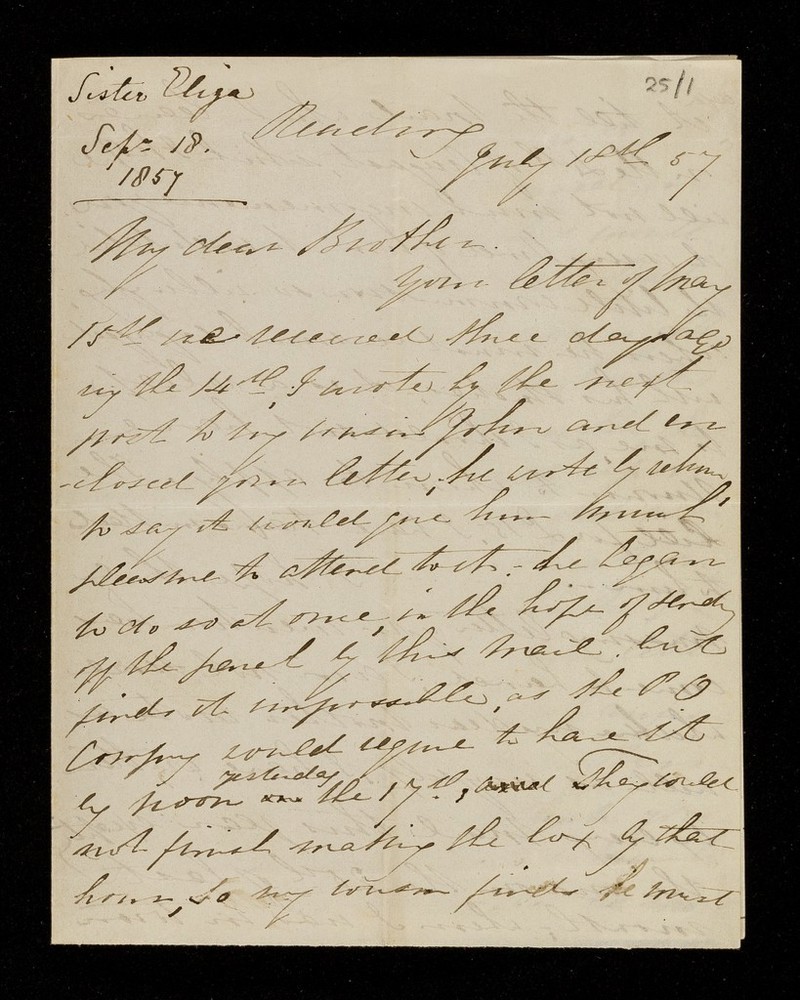 25/1
Sister Eliza
Sepr 18.
1857
Reading
July 18th 57
My dear Brother.
Your letter of May
15th we received three days ago
the 14th, I wrote by the next
post to my cousin John and en
-closed your letter, he wrote by return
to say it would give him much
pleasure to attend to it - he began
to do so at once, in the hope of sendg
off the parcel by this Mail. but
finds it impossible, as the P O
Company would require to have it
by noon yesterday the 17th, and They could
not finish making the box by that
hour, so my cousin finds he must